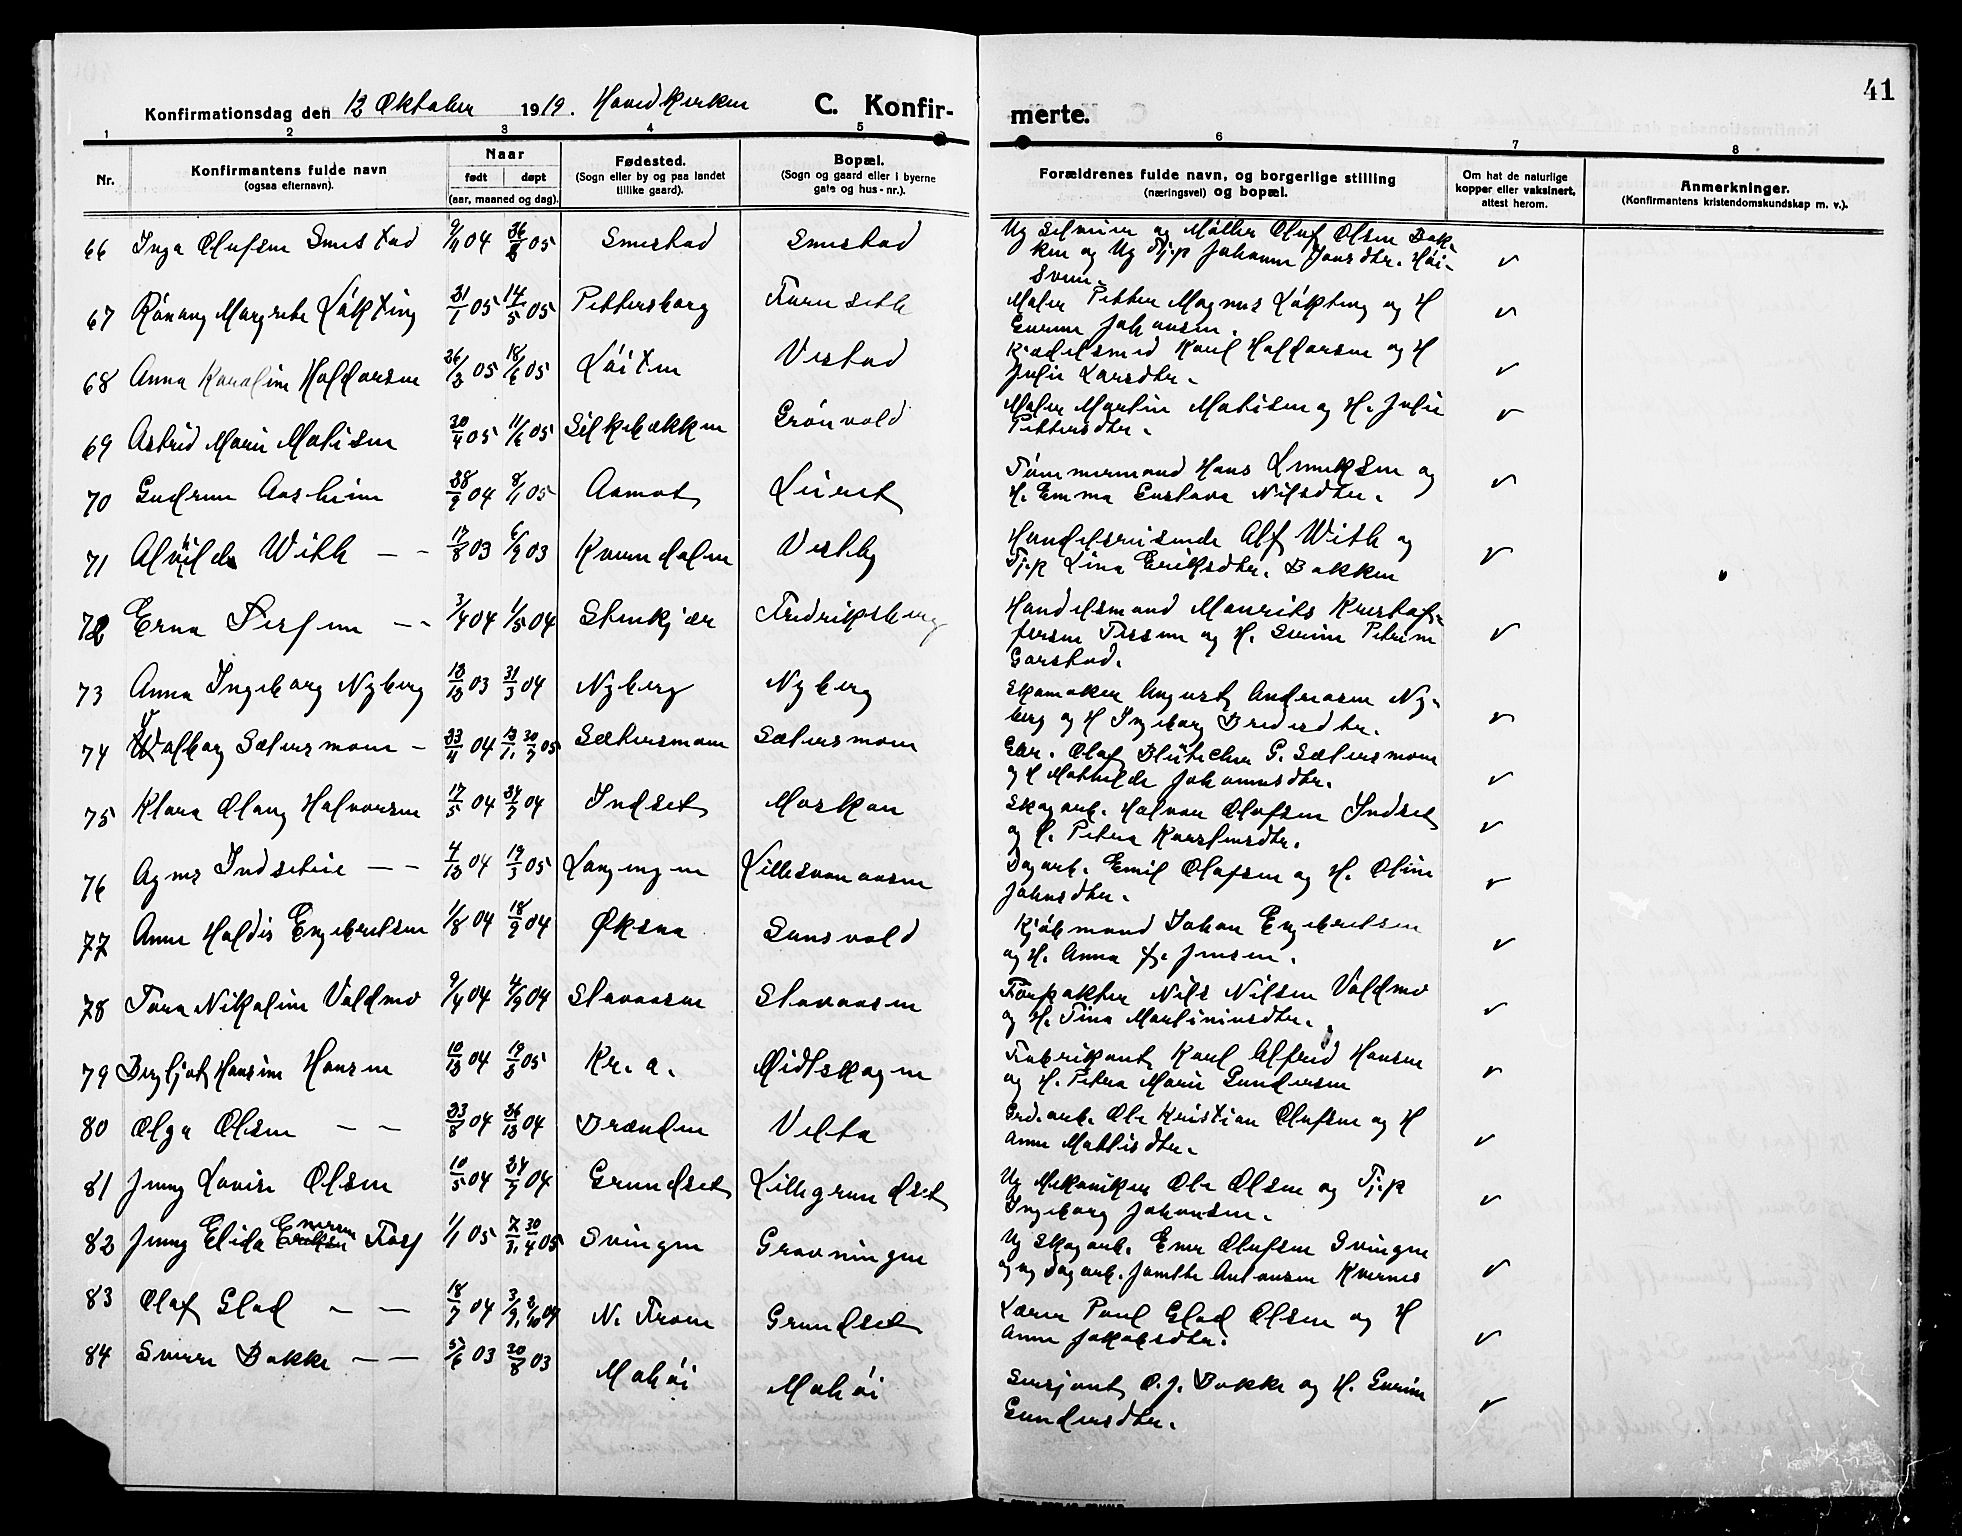 41
Konfirmationsdag den 12 Oktober 1919. Hovedkirken C. Konfir-
merte.
1 2 3 4 5 6 7 8
Nr.
Konfirmantens fulde navn
(ogsaa efternavn).
Naar
født døpt
(aar, maaned og dag).
Fødested.
(Sogn eller by og paa landet
tillike gaard).
Bopæl.
(Sogn og gaard eller i byerne
gate og hus-nr.).
Forældrenes fulde navn, og borgerlige stilling
(næringsvei) og bopæl.
Om hat de naturlige
kopper eller vaksinert,
attest herom.
Anmerkninger.
(Konfirmantens kristendomskundskap m. v.).
66 Inga Olufsen Smestad 9/11 04 26/2 05 Smestad Smestad
Ug Selveier og Møller Oluf Olsen Bak-
ken og Ug Tj.p Johanne Jonsdtr. Høi-
Sveen
67 Rønaug Margrete Løkting 31/1 05 14/5 05 Pettersborg Furuseth
Maler Petter Magnus Løkting og H
Gurine Johansen.
68 Anna Karoline Haldorsen 26/3 05 18/6 05 Løiten Vestad
Kjedelsmed Karl Haldorsen og H
Julie Larsdtr.
69 Astrid Marie Matisen 20/4 05 11/6 05 Silkebækken Grönvold
Maler Martin Matisen og H. Julie
Pettersdtr.
70 Gudrun Aasheim 28/9 04 8/1 05 Aamot Leiret
Tømmermand Hans Knutsen og
H. Emma Gustava Nilsdtr.
71 Alvilde With — - 17/8 03 6/9 03 Kverndalen Vestby
Handelsreisende Alf With og
Tj.p Lina Eriksdtr. Bakken
72 Erna — - 3/4 04 1/5 04 Stenkjær Fredriksberg
Handelsmand Maurits Kristof-
fersen og H. Serine Petrine
Garstad.
73 Anna Ingeborg Nyberg 12/12 03 31/3 04 Nyberg Nyberg
Skomaker August Andreasen Ny-
berg og H Ingeborg Bredesdtr.
74 Valborg Sætersmoen - 23/11 04 30/7 05 Sætersmoen Sætersmoen
Gbr. Olaf Blüecher G. Sætersmoen
og H Mathilde Johannesdtr.
75 Klara Olaug Halvorsen 17/5 04 24/7 04 Indset Moskau
Skogarb. Halvor Olufsen Indset
og H. Petra Karstensdtr.
76 Agnes Indsetlie — - 4/12 04 19/3 05 Langengen Lillesvanaasen
Dagarb. Emil Olafsen og H. Oline
Johnsdtr.
77 Anne Haldis Engebretsen 1/8 04 18/9 04 Øksna Sunsvold
Kjøbmand Johan Engebretsen
og H. Anna F. Jensen.
78 Tora Nikoline Voldmo 9/4 04 4/9 04 Stavaasen Stavaasen
Forpakter Nils Nilsen Voldmo
og H. Tina Martiniusdtr.
79 Bergljot Hansine Hansen 10/12 04 19/3 05 Kr.a. Midtskogen
Fabrikant Karl Alfred Hansen
og H. Petra Marie Gundersen
80 Olga Olsen — - 23/8 04 26/12 04 Brænden Velta
Grd.arb. Ole Kristian Olufsen og H
Anne Mathisdtr.
81 Jenny Lovise Olsen 10/5 04 24/7 04 Grundset Lillegrundset
Ug Mekaniker Ole Olsen og Tj.p
Ingeborg Johansen.
82 Jenny Elida Enersen Fors 1/1 05 30/4 05 Svingen Gravningen
Ug Skogarb. Ener Olufsen Svingen
og ug Dagarb. Jenthe Antonsen Kvernes
83 Olaf Glad — - 18/7 04 N. Tron Grundset
Lærer Paul Glad Olsen og H
Anne Jakobsdtr.
84 Sverre Bakke — - 5/6 03 30/8 03 Mohöi Mohöi
Sersjant O. J. Bakke og H. Gurine
Gundersdtr.